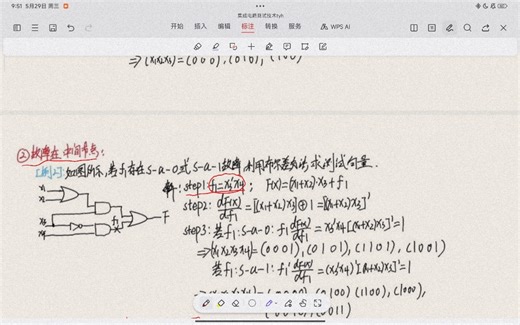 9:51 5月29日 周三
集成电路测试技术hyh
开始 插入 标注 转换 服务 WPS AI
⇒(x₁x₂x₃)=(000),(010),(100)
②故障在中间节点:
[例2]如图所示,若f₁存在s-a-0或s-a-1故障,利用布尔差分法,求测试向量.
解:step1: f₁=x₃'x₄; F(x)=(x₁+x₂)·x₃+f₁
step2: dF(x)/df₁=[(x₁+x₂)x₃]⊕1=[(x₁+x₂)x₃]'
step3: 若f₁:s-a-0: f₁dF(x)/df₁=x₃'x₄[(x₁+x₂)x₃]'=1
⇒(x₁x₂x₃x₄)=(0001),(0101),(1101),(1001)
若f₁:s-a-1: f₁'dF(x)/df₁=(x₃'x₄)'[(x₁+x₂)x₃]'=1
(0100)(1100),(1000),
x₁
x₂
x₃
x₄
f₁
F